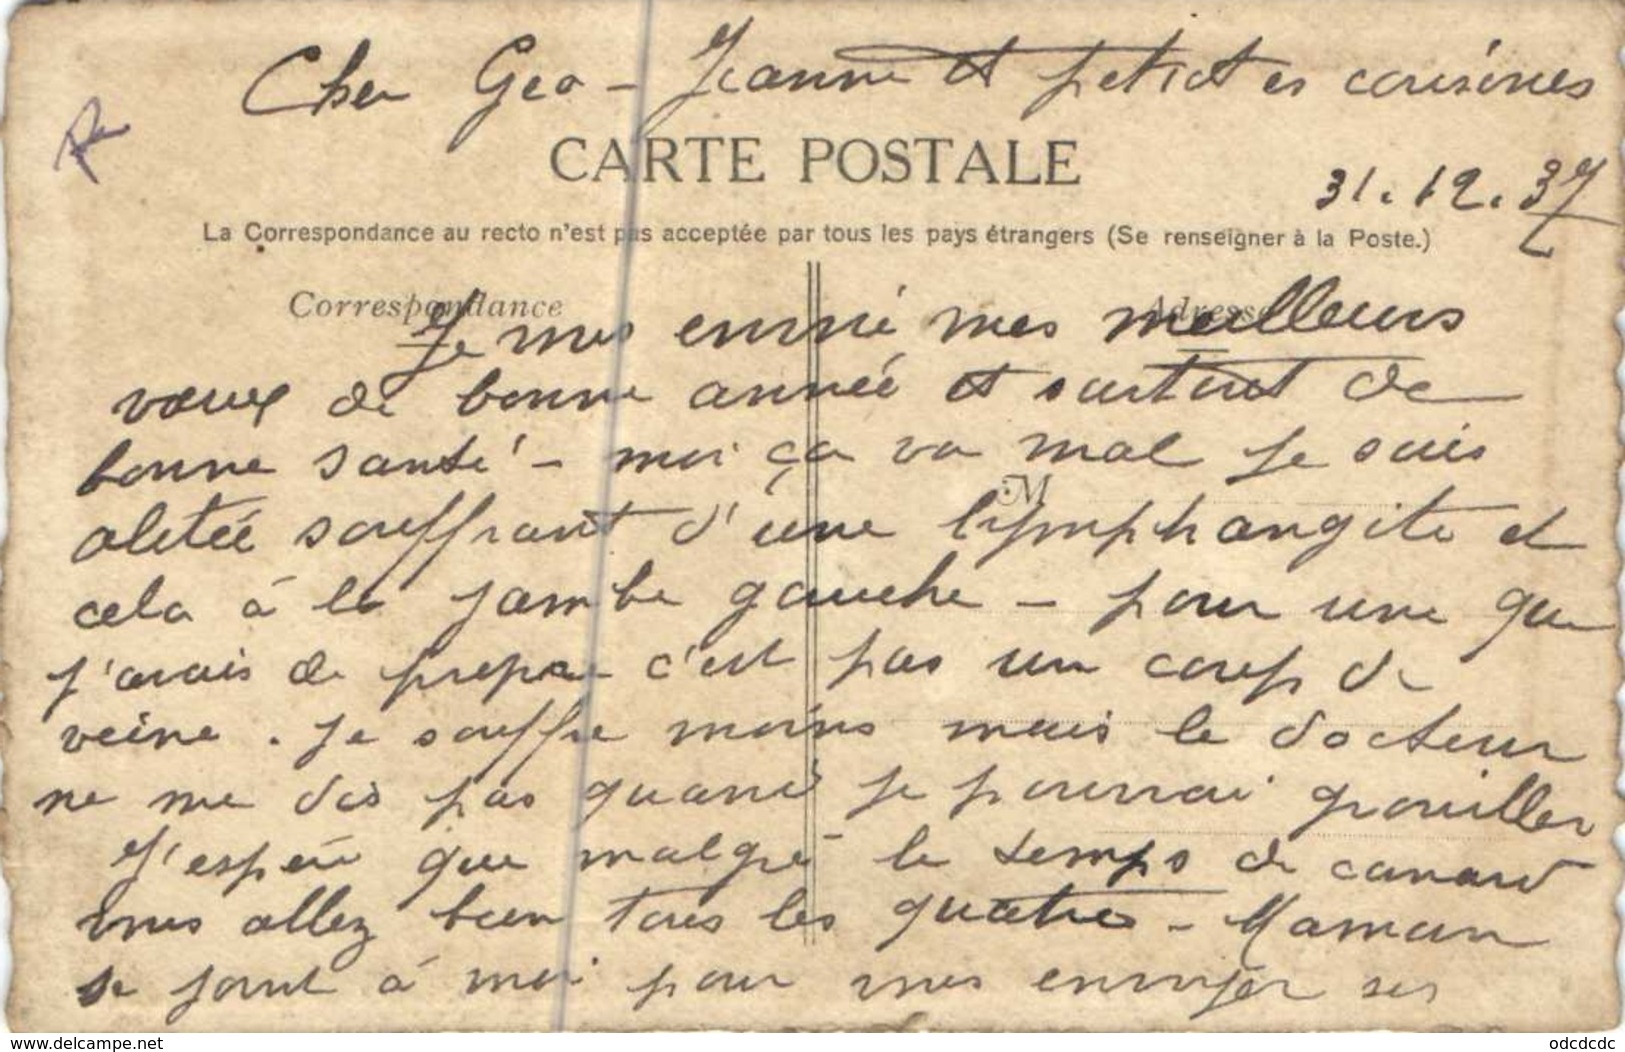 Cher Geo - Jeanne et petites cousines
CARTE POSTALE
31.12.37
La Correspondance au recto n'est pas acceptée par tous les pays étrangers (Se renseigner à la Poste.)
Correspondance
Adresse
Je vous envoie mes meilleurs
vœux de bonne année et surtout de
bonne santé - moi ça va mal je suis
M
alitée souffrant d'une lymphangite et
cela à la jambe gauche - pour une que
j'avais de propre c'est pas un coup de
veine. je souffre moins mais le docteur
ne me dis pas quand je pourrai gouiller
J'espère que malgré le temps de canard
vous allez bien tous les quatre - Maman
se joint à moi pour vous envoyer ses
www.delcampe.net
odcdcdc